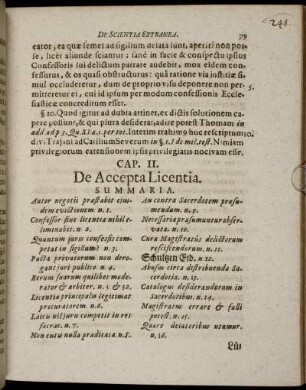 248.
DE SCIENTIA EXTRANEA. 79
eator, ea quæ semel ad sigillum delata sunt, aperiri non pos-
se, licet aliunde sciantur: sanè in facie & conspectu ipsius
Confessoris sui delictum patrare audebit, mox eidem con-
fessurus, & os quasi obstructurus: quâ ratione via justitiæ si-
mul occluderetur, dum de proprio visu deponere non per-
mitteretur ei, cui id ipsum per modum confessionis Eccle- 5.
siasticæ concreditum esset.
§ 20. Quod igitur ad dubia attinet, ex dictis solutionem ca-
pere possunt, & qui plura desiderat, adire potest Thomam in
add ad p. 3. Q. XI a. 1. per tot. Interim trahimus huc rescriptum 10.
d. v. Trajani ad Catilium Severum in § 1. l de mil. test. Nimiam
privilegiorum extensionem ipsis privilegiatis nocivam esse.
CAP. II.
De Accepta Licentia.
SUMMARIA.
Autor negotii præstabit ejus-
dem evictionem n. 1.
Confessor sine licentia nihil e-
liminabit. n. 2.
Quantum juris confessis com-
petat in sigillum? n. 3.
Pacta privatorum non dero-
gant juri publico n. 4.
Rerum suarum quilibet mode-
rator & arbiter. n. 5. & 32.
Licentia principalis legitimat
procuratorem. n. 6.
Laicus nil juri competit in res
sacras. n. 7.
Non entis nulla prædicata n. 8.
An contra Sacerdotem præsu-
mendum. n. 9.
Necessaria præsumuntur obser-
vata. n. 10.
Cura Magistratûs delictorum
resciscendorum. n. 11.
Schultzen Eid. n. 12.
Abusus circa distribuenda Sa-
cerdotia. n. 13.
Catalogus desiderandorum in
Sacerdotibus. n. 14.
Magistratus errare & falli
potest n. 15.
Quare detacoribus utamur.
n. 16.
L iij